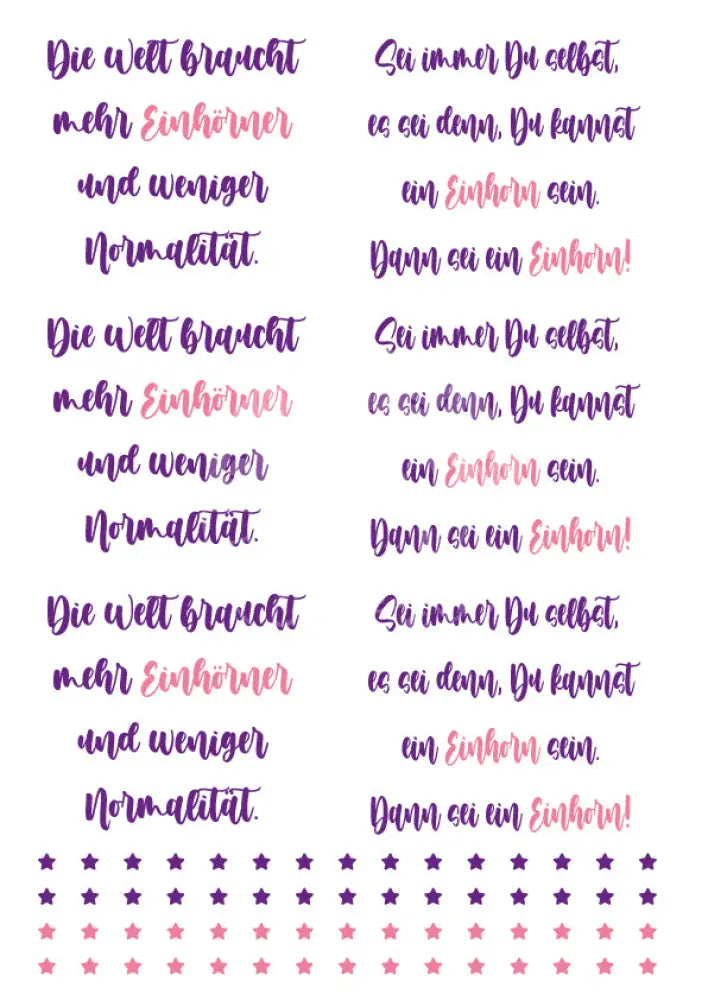 Die Welt braucht
mehr Einhörner
und weniger
Normalität.
Sei immer Du selbst,
es sei denn, Du kannst
ein Einhorn sein.
Dann sei ein Einhorn!
Die Welt braucht
mehr Einhörner
und weniger
Normalität.
Sei immer Du selbst,
es sei denn, Du kannst
ein Einhorn sein.
Dann sei ein Einhorn!
Die Welt braucht
mehr Einhörner
und weniger
Normalität.
Sei immer Du selbst,
es sei denn, Du kannst
ein Einhorn sein.
Dann sei ein Einhorn!